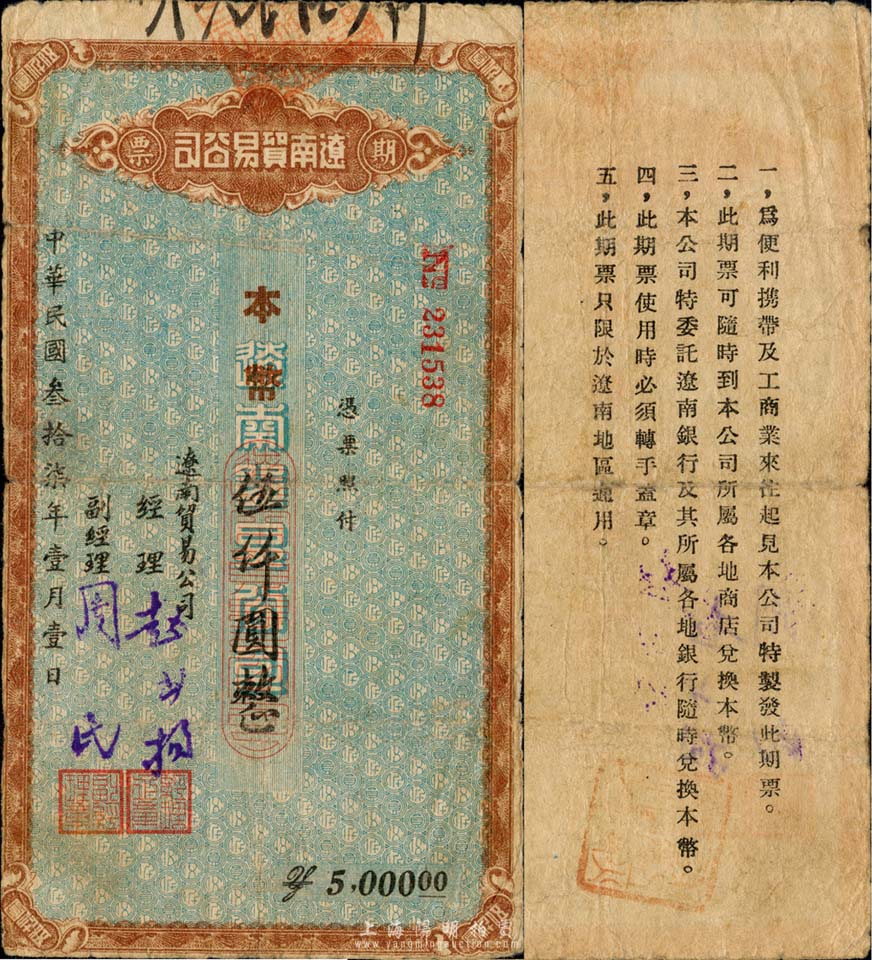 期
遼南貿易公司
票
№ 231538
憑票照付
本幣
伍仟圓整
遼南貿易公司
經理
副經理
周民
中華民國叁拾柒年壹月壹日
5,000.00
一，爲便利攜帶及工商業來往起見本公司特製發此期票。
二，此期票可隨時到本公司所屬各地商店兌換本幣。
三，本公司特委託遼南銀行及其所屬各地銀行隨時兌換本幣。
四，此期票使用時必須轉手蓋章。
五，此期票只限於遼南地區通用。
上海陽明拍賣
www.yangmingauction.com